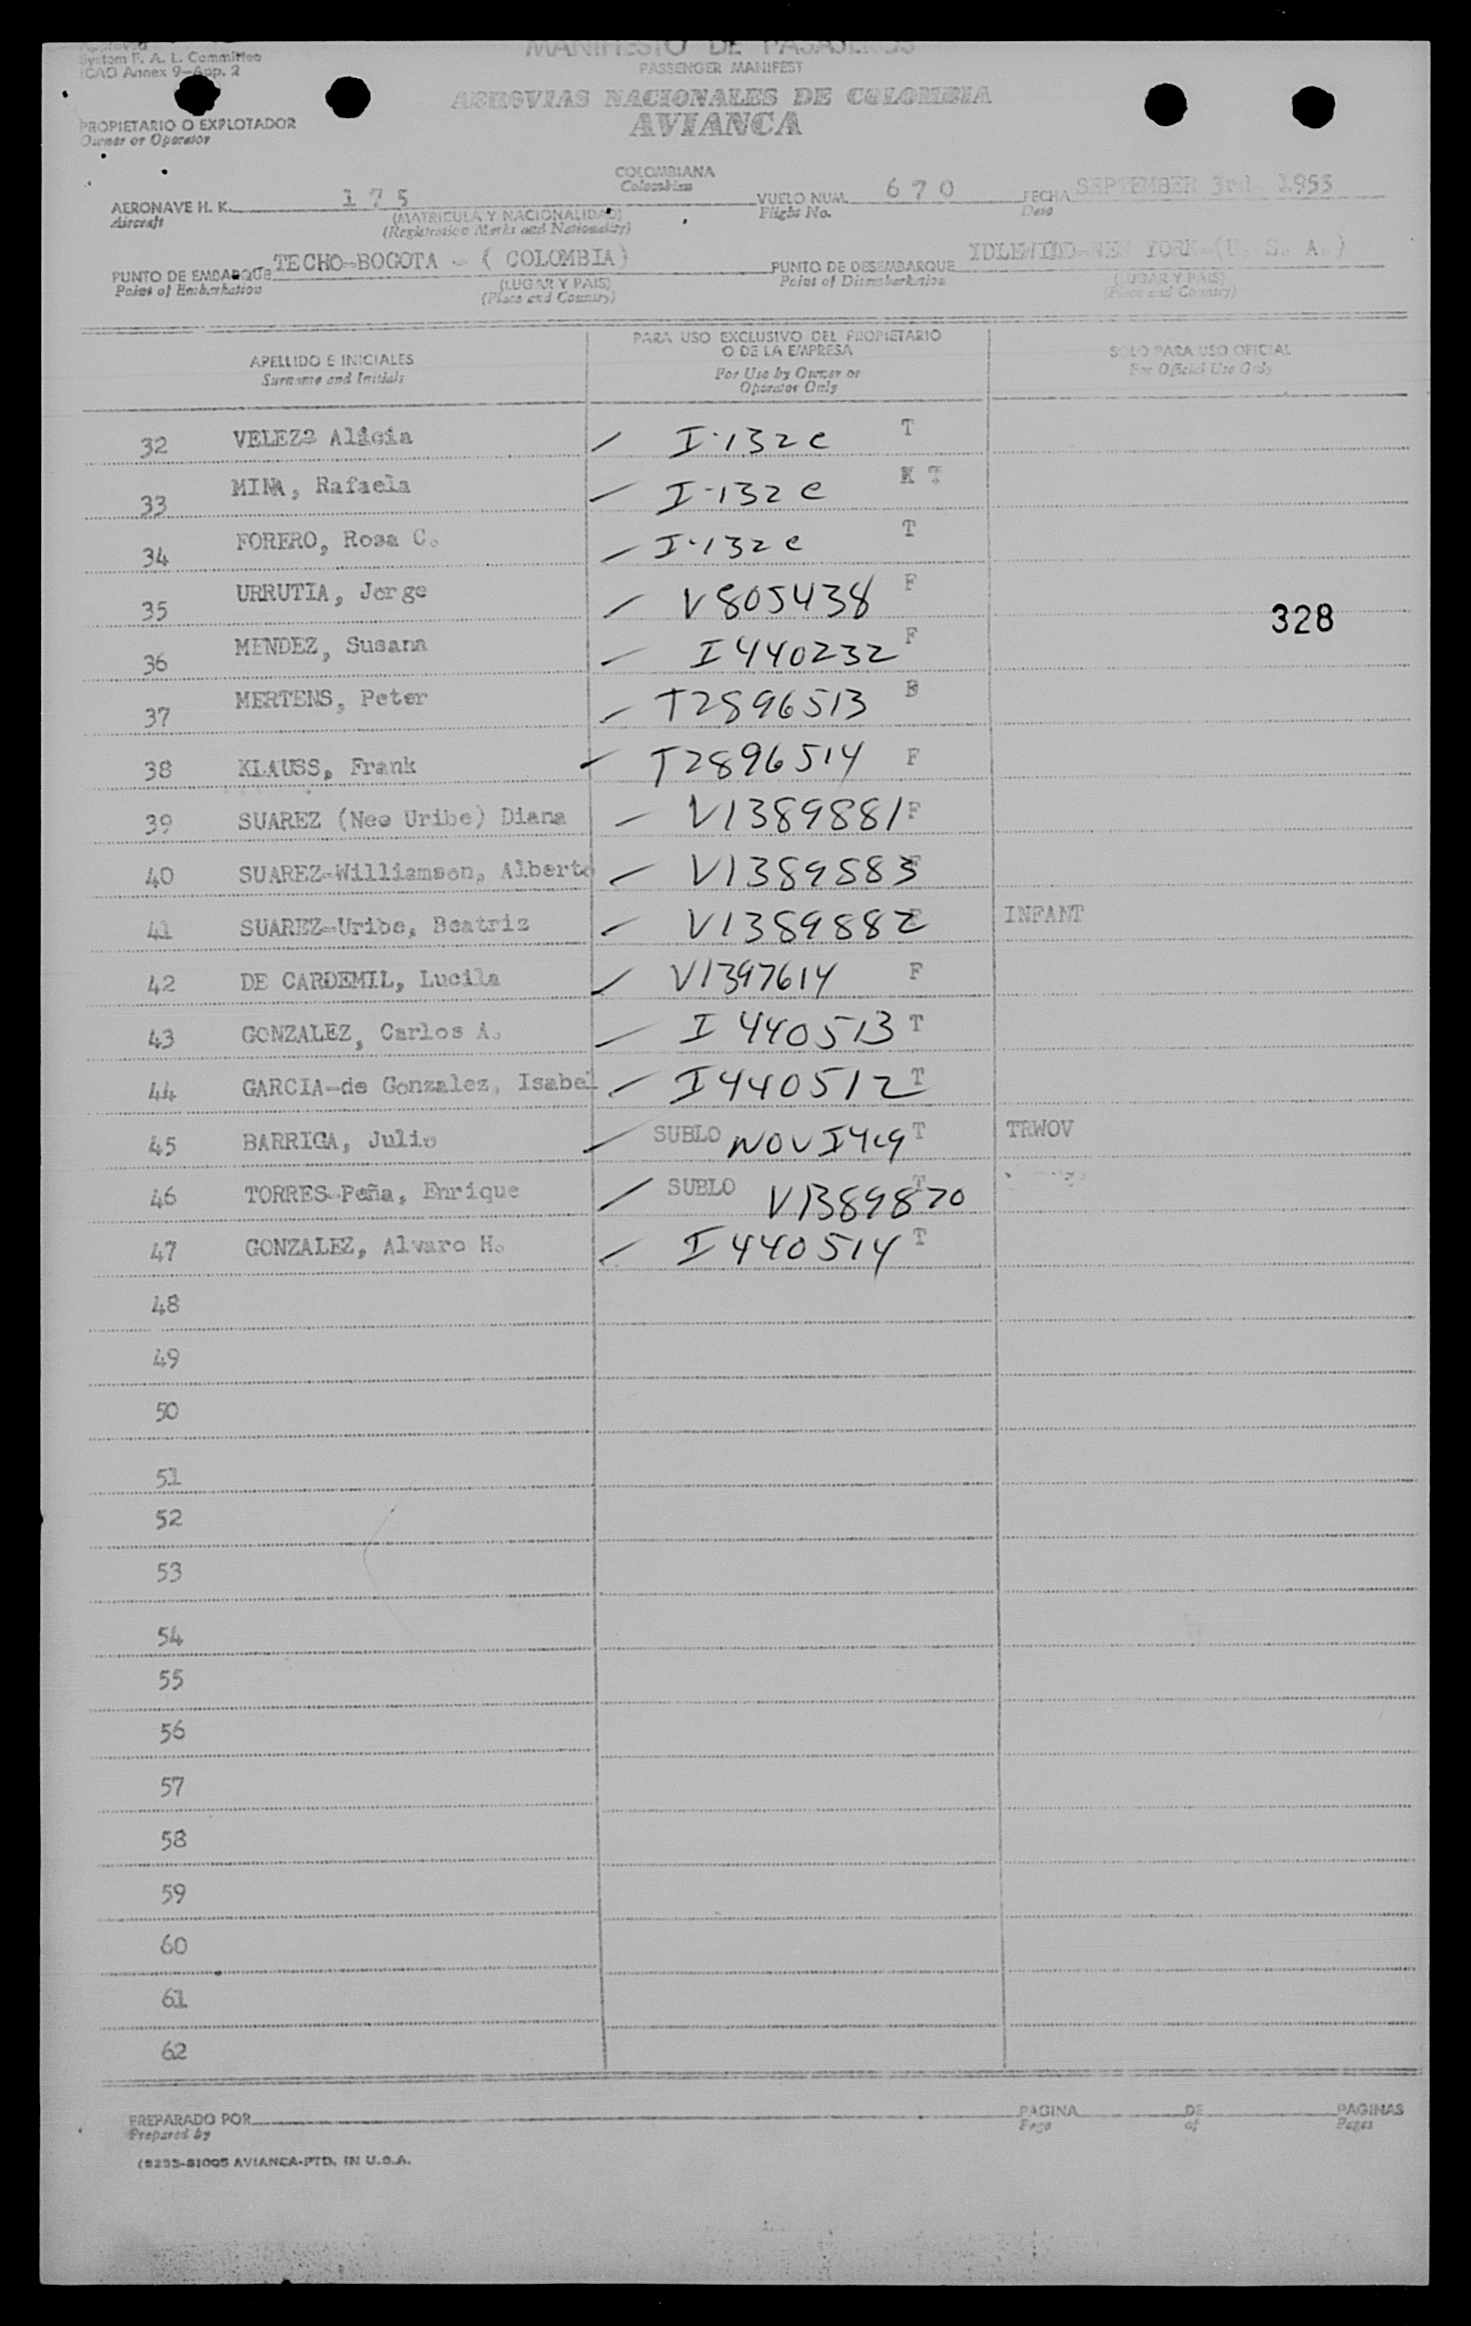 Approved
System F. A. L. Committee
ICAO Annex 9-App. 2
MANIFIESTO DE PASAJEROS
PASSENGER MANIFEST
AEROVIAS NACIONALES DE COLOMBIA
AVIANCA
PROPIETARIO O EXPLOTADOR
Owner or Operator
COLOMBIANA
Colombian
AERONAVE H. K. 175 VUELO NUM. 670 FECHA SEPTEMBER 3rd. 1955
Aircraft (MATRICULA Y NACIONALIDAD) Flight No. Date
(Registration Marks and Nationality)
PUNTO DE EMBARQUE TECHO-BOGOTA - ( COLOMBIA) PUNTO DE DESEMBARQUE IDLEWILD-NEW YORK-(U. S. A.)
Point of Embarkation (LUGAR Y PAIS) Point of Disembarkation (LUGAR Y PAIS)
(Place and Country) (Place and Country)
APELLIDO E INICIALES PARA USO EXCLUSIVO DEL PROPIETARIO O DE LA EMPRESA SOLO PARA USO OFICIAL
Surname and Initials For Use by Owner or Operator Only For Official Use Only
32 VELEZ Alicia I-132c T
33 MINA, Rafaela I-132c T
34 FORERO, Rosa C. I-132c T
35 URRUTIA, Jorge V805438 F
328
36 MENDEZ, Susana I440232 F
37 MERTENS, Peter T2896513
38 KLAUSS, Frank T2896514 F
39 SUAREZ (Nee Uribe) Diana V1389881 F
40 SUAREZ-Williamson, Alberto V1389883 F
41 SUAREZ-Uribe, Beatriz V1389882 F INFANT
42 DE CARDEMIL, Lucila V1397614 F
43 GONZALEZ, Carlos A. I 440513 T
44 GARCIA-de Gonzalez, Isabel I440512 T
45 BARRIGA, Julio SUBLO NOV I419 T TRWOV
46 TORRES-Peña, Enrique SUBLO V1389870 T
47 GONZALEZ, Alvaro H. I440514 T
48
49
50
51
52
53
54
55
56
57
58
59
60
61
62
PREPARADO POR PAGINA DE PAGINAS
Prepared by Page of Pages
(8255-81005 AVIANCA-PTD. IN U.S.A.